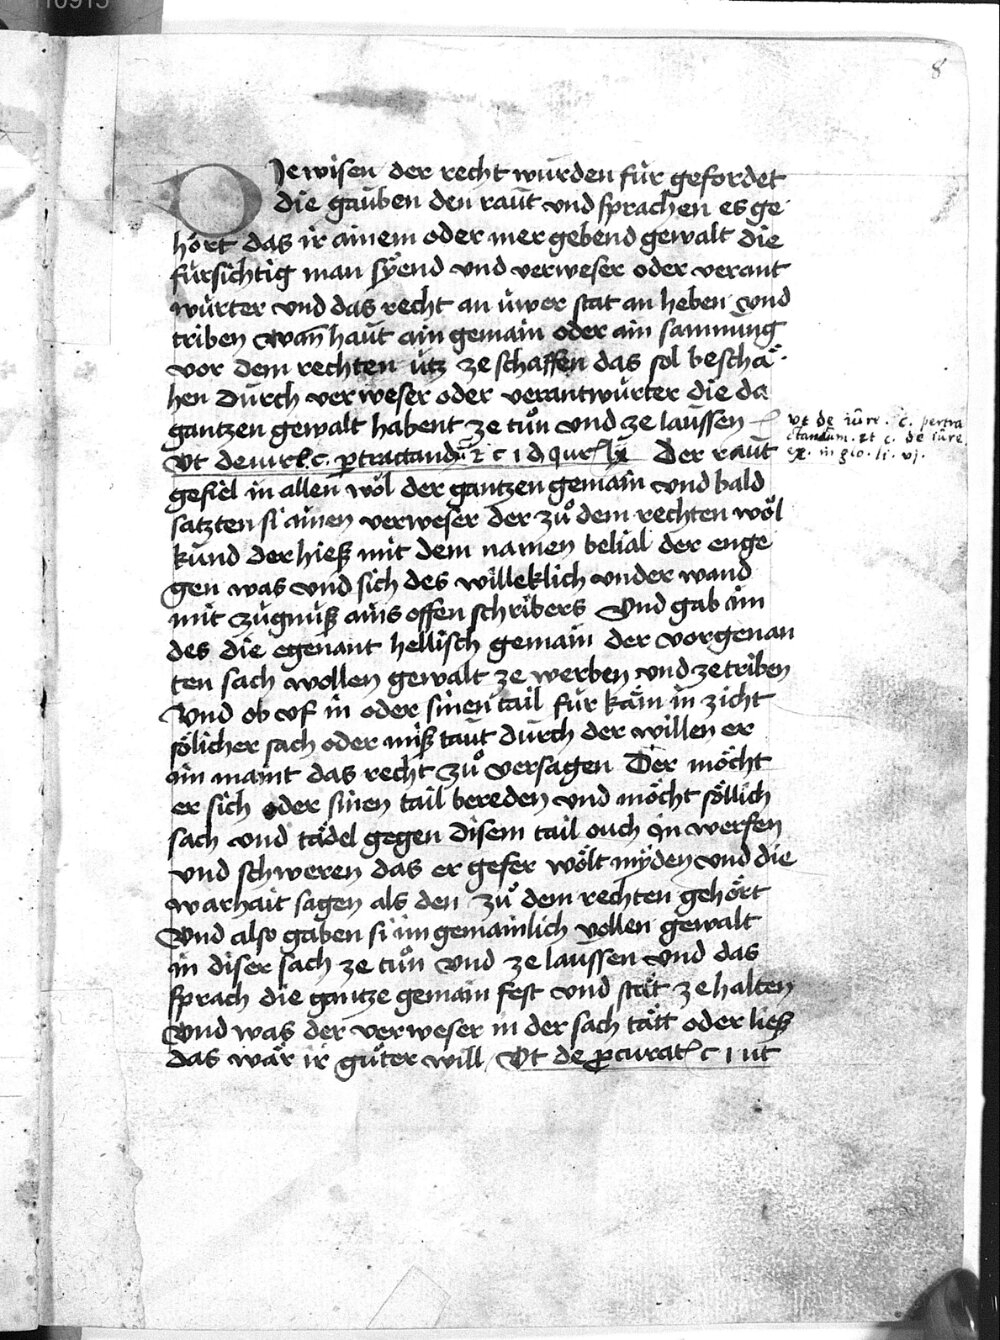 8
Die wisen der recht wurden für gefordet
die gauben den raut vnd sprachen es ge
hört das ir ainem oder mer gebend gewalt die
fürsichtig man sÿend vnd verweser oder verant
würter vnd das recht an üwer stat an heben vnd
triben wan̄ haut ain gemain oder ain samnung
vor dem rechten ütz ze schaffen das sol beschä
hen durch verweser oder verantwürter die da
gantzen gewalt habent ze tůn vnd ze laussen
vt de iure. c. pertra
ctandum. et c. de iure
Vt de iurl c. ptractandū et c 1 d
Der raut
gefiel in allen wol der gantzen gemain vnd bald
satzten si ainen verweser der zů dem rechten wol
kund der hieß mit dem namen belial der enge
gen was vnd sich des willeklich vnder wand
mit zügnuß ains offen schribers Vnd gab im
des die egenant hellisch gemain der vorgenan
ten sach vollen gewalt ze werben vnd ze triben
Vnd ob vf in oder sinen tail für käm in zicht
sölicher sach oder mißtaut durch der willen er
im maint das recht zů versagen Der möcht
er sich oder sinen tail bereden vnd möcht söllich
sach vnd tädel gegen disem tail ouch in werfen
vnd schweren das er gefer wölt mÿden vnd die
warhait sagen als den zů dem rechten gehört
Vnd also gaben si im gemainlich vollen gewalt
in diser sach ze tůn vnd ze laussen vnd das
sprach die gantze gemain fest vnd stät ze halten
Vnd was der verweser in der sach tätt oder ließ
das wär ir güter will Vt de pcurat c 1 ut